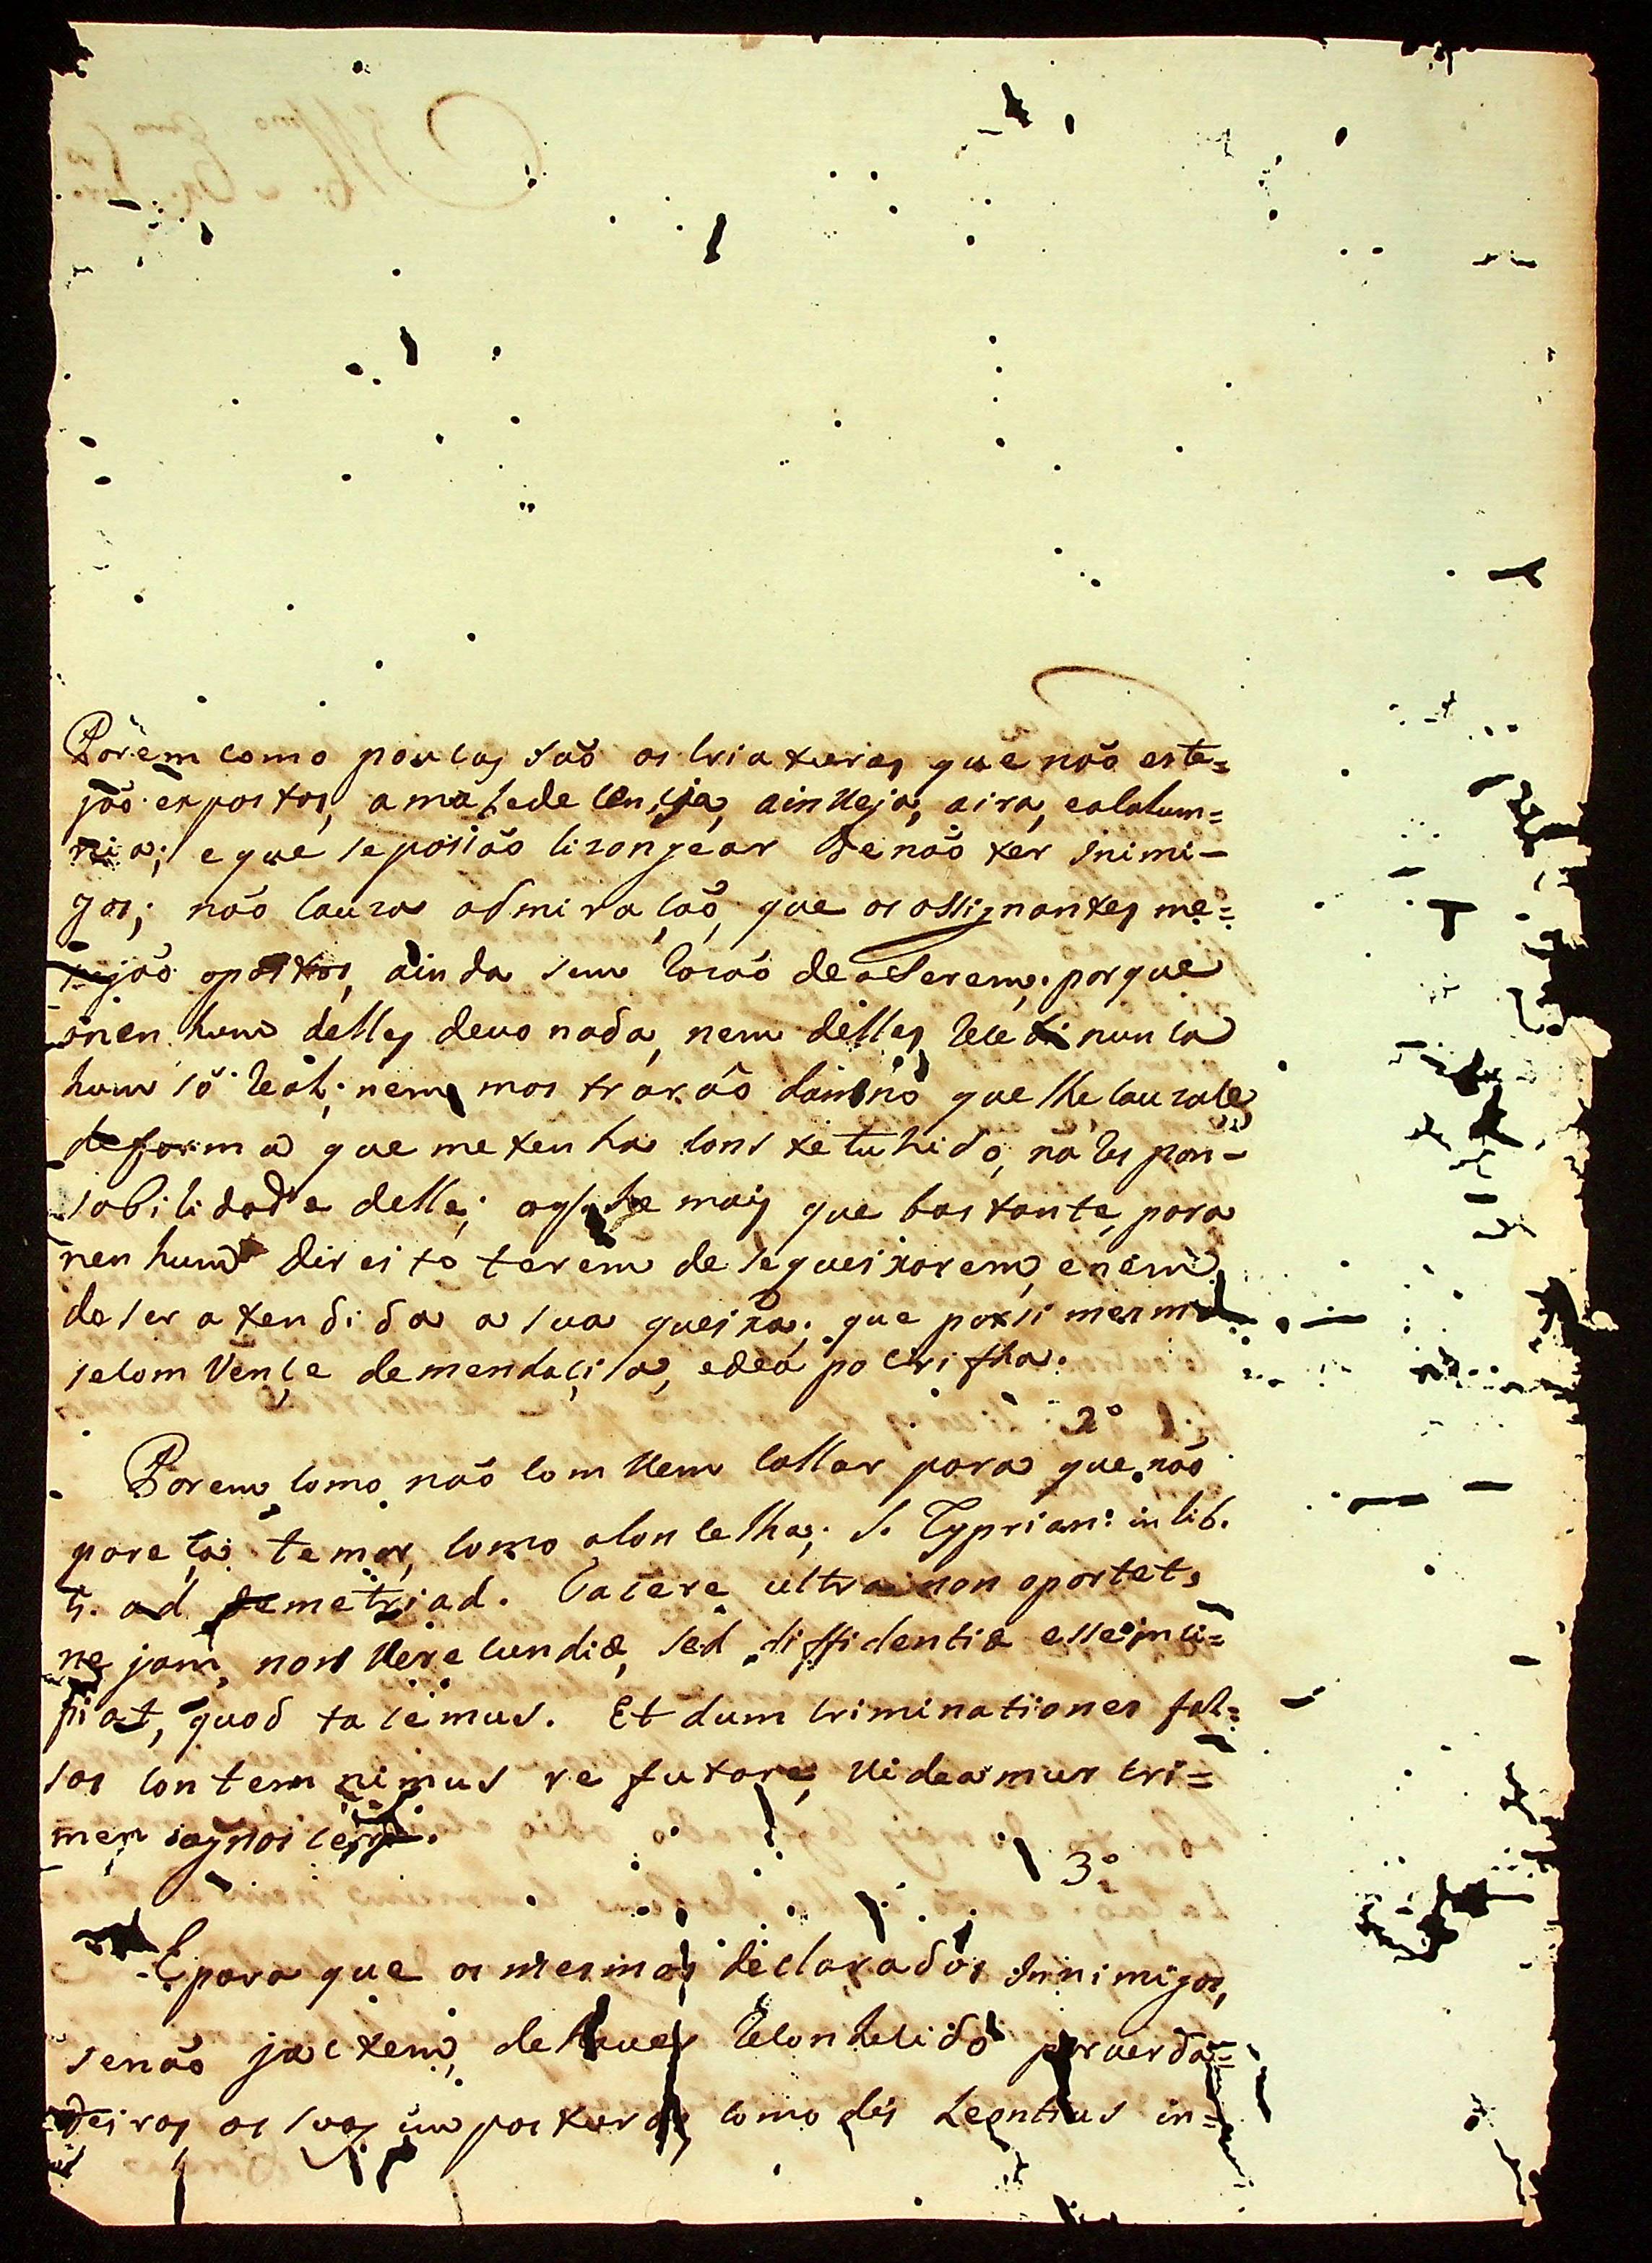 Porem como poucas são as criaturas que não este=
jão expostas, a maledecencia, a inveja, a ira, e a calum=
nia; e que se possão lizongear de não ter inimi-
gos; não cauza admiração, que os assignantes me
sejão opostos, ainda sem razão de o serem; porque
a nenhum delles devo nada, nem delles recebi nunca
hum só real; nem mostrarão damno que lhe cauzace
de forma que me tenha constetuhido, na respon-
sabilidade delle; o que he mais que bastante, para
nenhum direito terem de se queixarem, e nem
de ser atendida a sua queixa; que por si mesma
se convençe de mendaçisa, e de apocrifha.
2º
Porem como não convem callar para que não
pareça temor, como aconcelha; S. Cyprian: in lib.
ad Demetriad. Tacere ultra non oportet,
ne jam, non verecundiæ, sed diffidentiæ esse inci=
piat, quod tacemus. Et dum criminationes fal=
sas contemnimus refutare, videamur cri=
men agnoscere.
3º
E para que os mesmos declarados innimigos,
se não jactem, de haver reconhecido por verda=
deiras, as suas imposturas, como diz Leontius in=